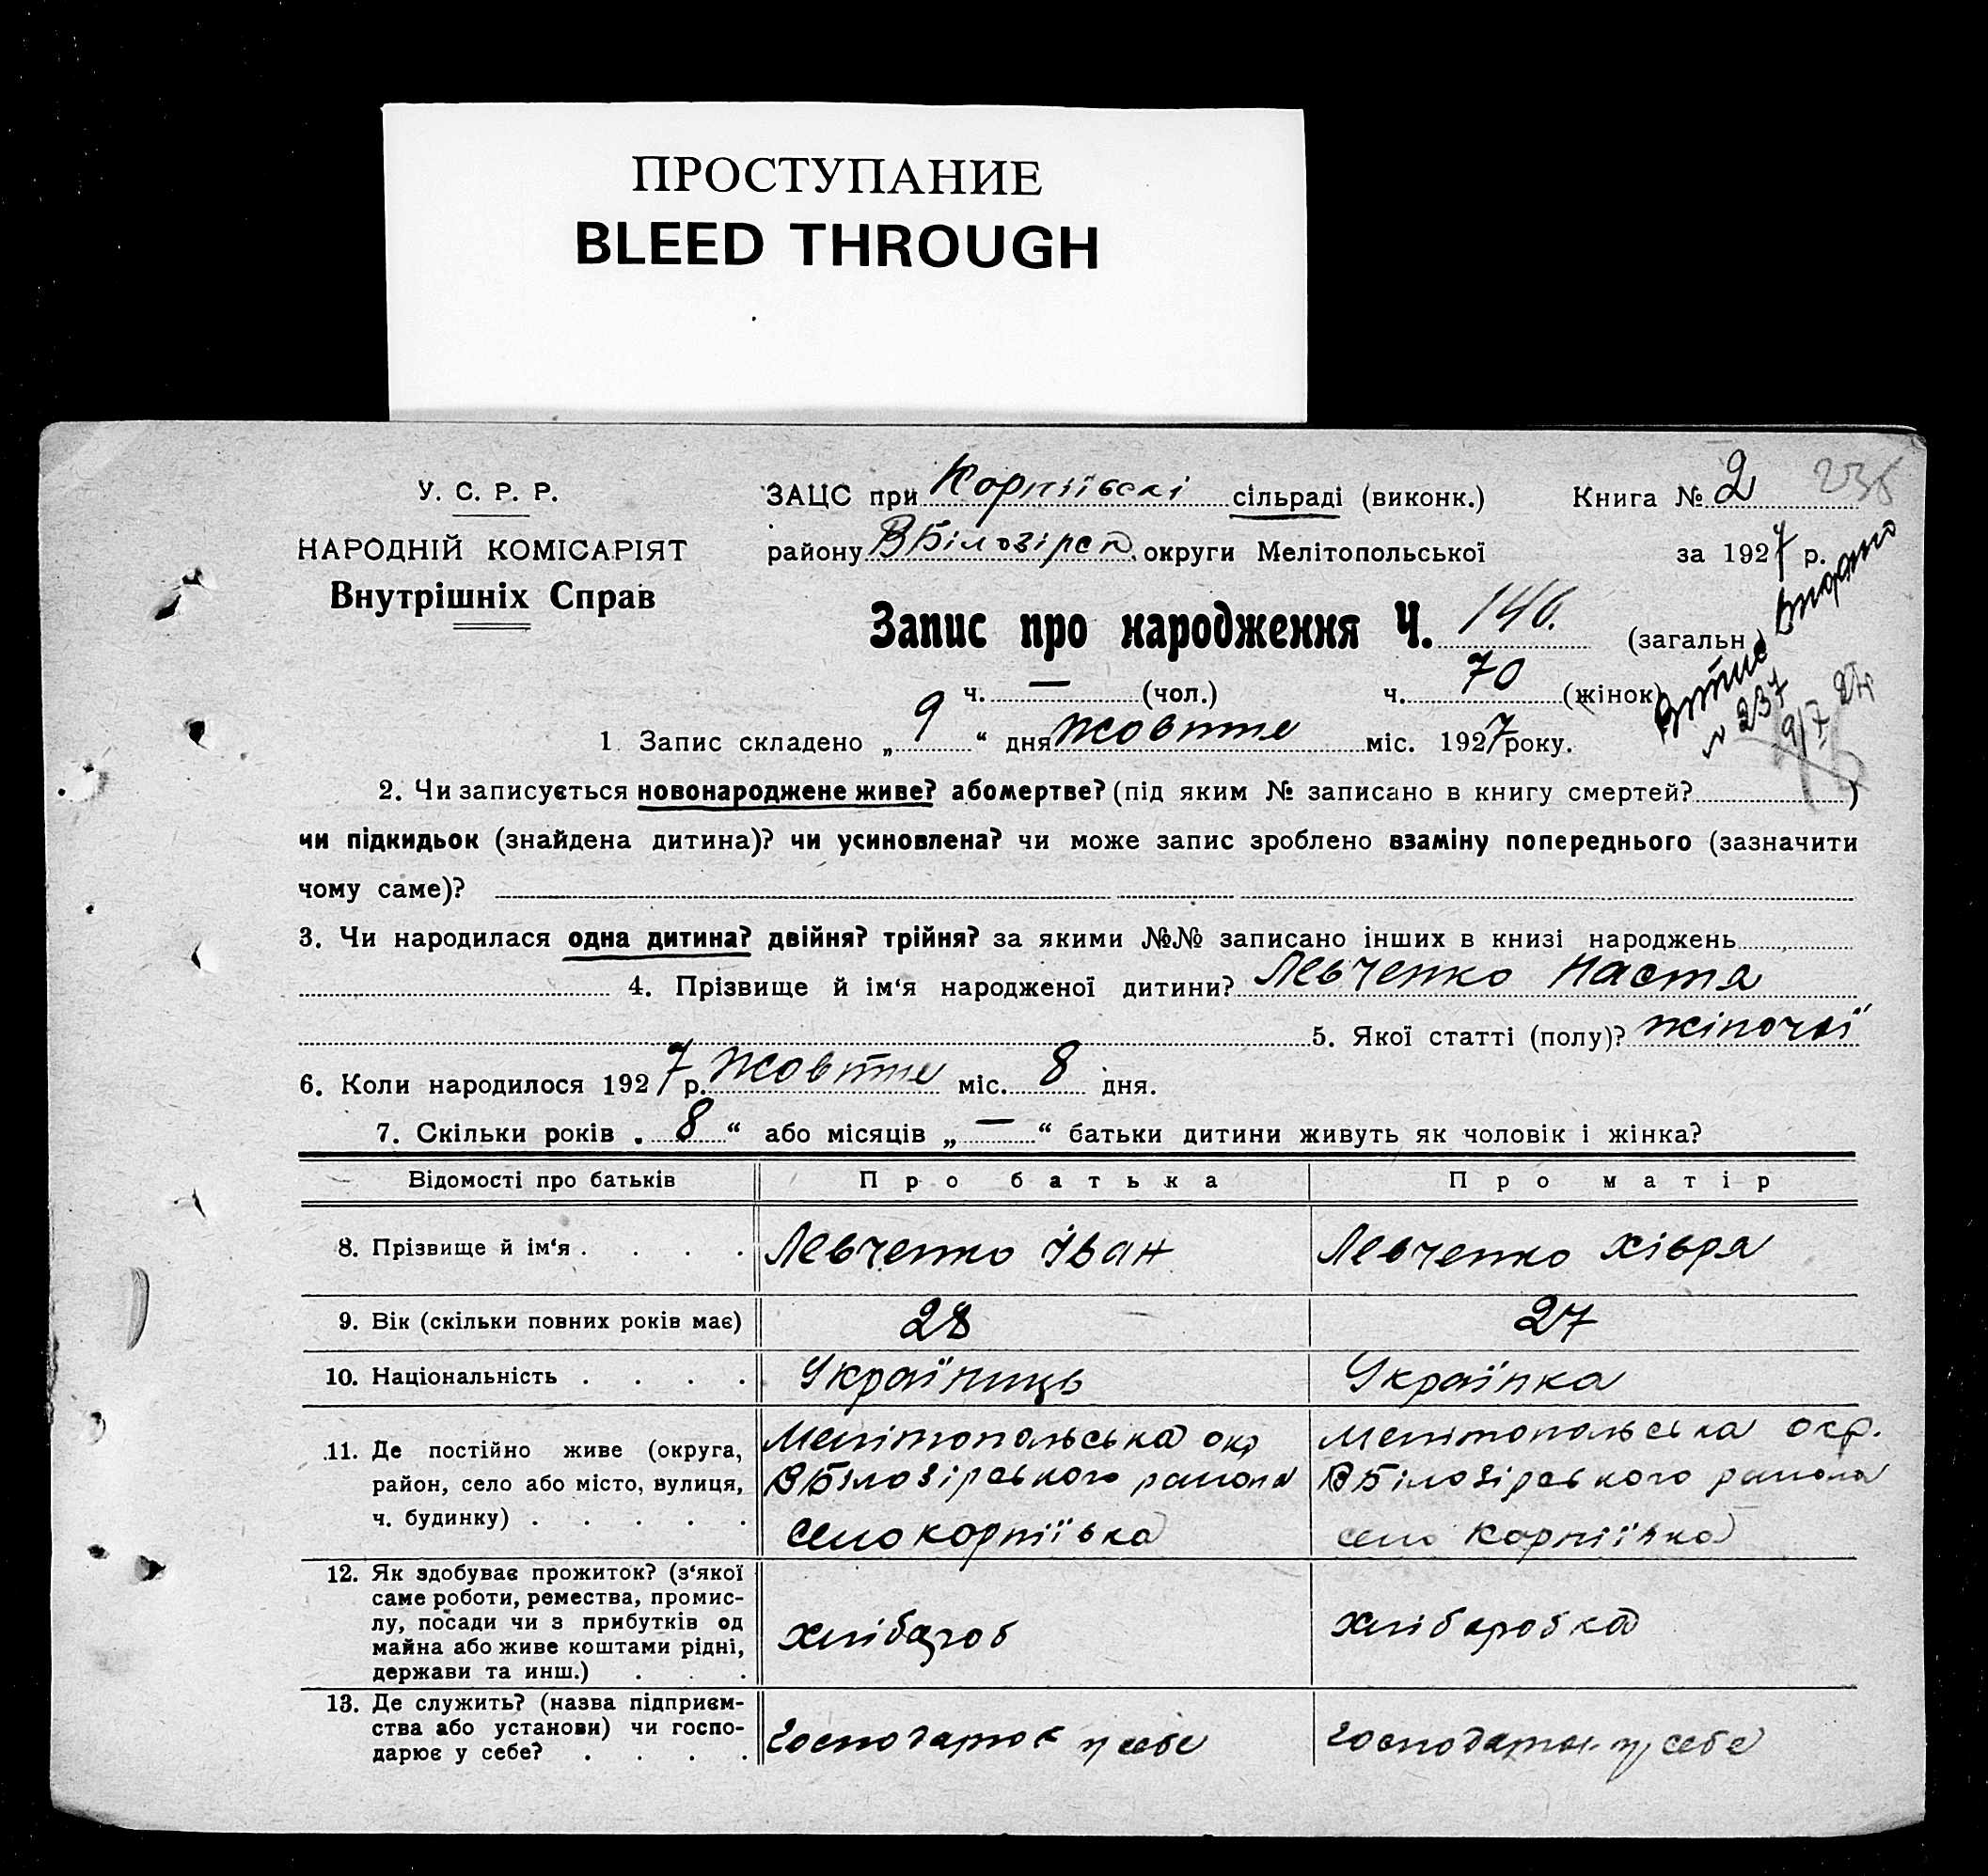 ПРОСТУПАНИЕ
BLEED THROUGH
У. С. Р. Р.
НАРОДНІЙ КОМІСАРІЯТ
Внутрішніх Справ
ЗАЦС при Корніївскі сільраді (виконк.) Книга № 2
району ВБілозірск. округи Мелітопольської за 1927 р.
Запис про народження Ч. 146. (загальн.)
ч. — (чол.) ч. 70 (жінок)
Витяг видано
№ 237
1. Запис складено „ 9 “ дня жовтня міс. 1927 року.
2. Чи записується новонароджене живе? або мертве? (під яким № записано в книгу смертей? )
чи підкидьок (знайдена дитина)? чи усиновлена? чи може запис зроблено взаміну попереднього (зазначити
чому саме)?
3. Чи народилася одна дитина? двійня? трійня? за якими №№ записано інших в книзі народжень
4. Прізвище й ім‘я народженої дитини? Левченко Настя
5. Якої статті (полу)? жіночої
6. Коли народилося 1927 р. жовтня міс. 8 дня.
7. Скільки років „ 8 “ або місяців „ — “ батьки дитини живуть як чоловік і жінка?
Відомості про батьків Про батька Про матір
8. Прізвище й ім‘я . . . . Левченко Іван Левченко Хівря
9. Вік (скільки повних років має) 28 27
10. Національність . . . . Україниць Українка
11. Де постійно живе (округа, Мелітопольська окр Мелітопольська окр.
район, село або місто, вулиця, ВБілозірського района ВБілозірського района
ч. будинку) . . . . . село корніївка село Корніївка
12. Як здобуває прожиток? (з‘якої
саме роботи, ремества, промис-
лу, посади чи з прибутків од хлібароб хлібаробка
майна або живе коштами рідні,
держави та инш.) . . .
13. Де служить? (назва підприєм-
ства або установи) чи госпо-
дарює у себе? . . . . господарює у себе господарює у себе